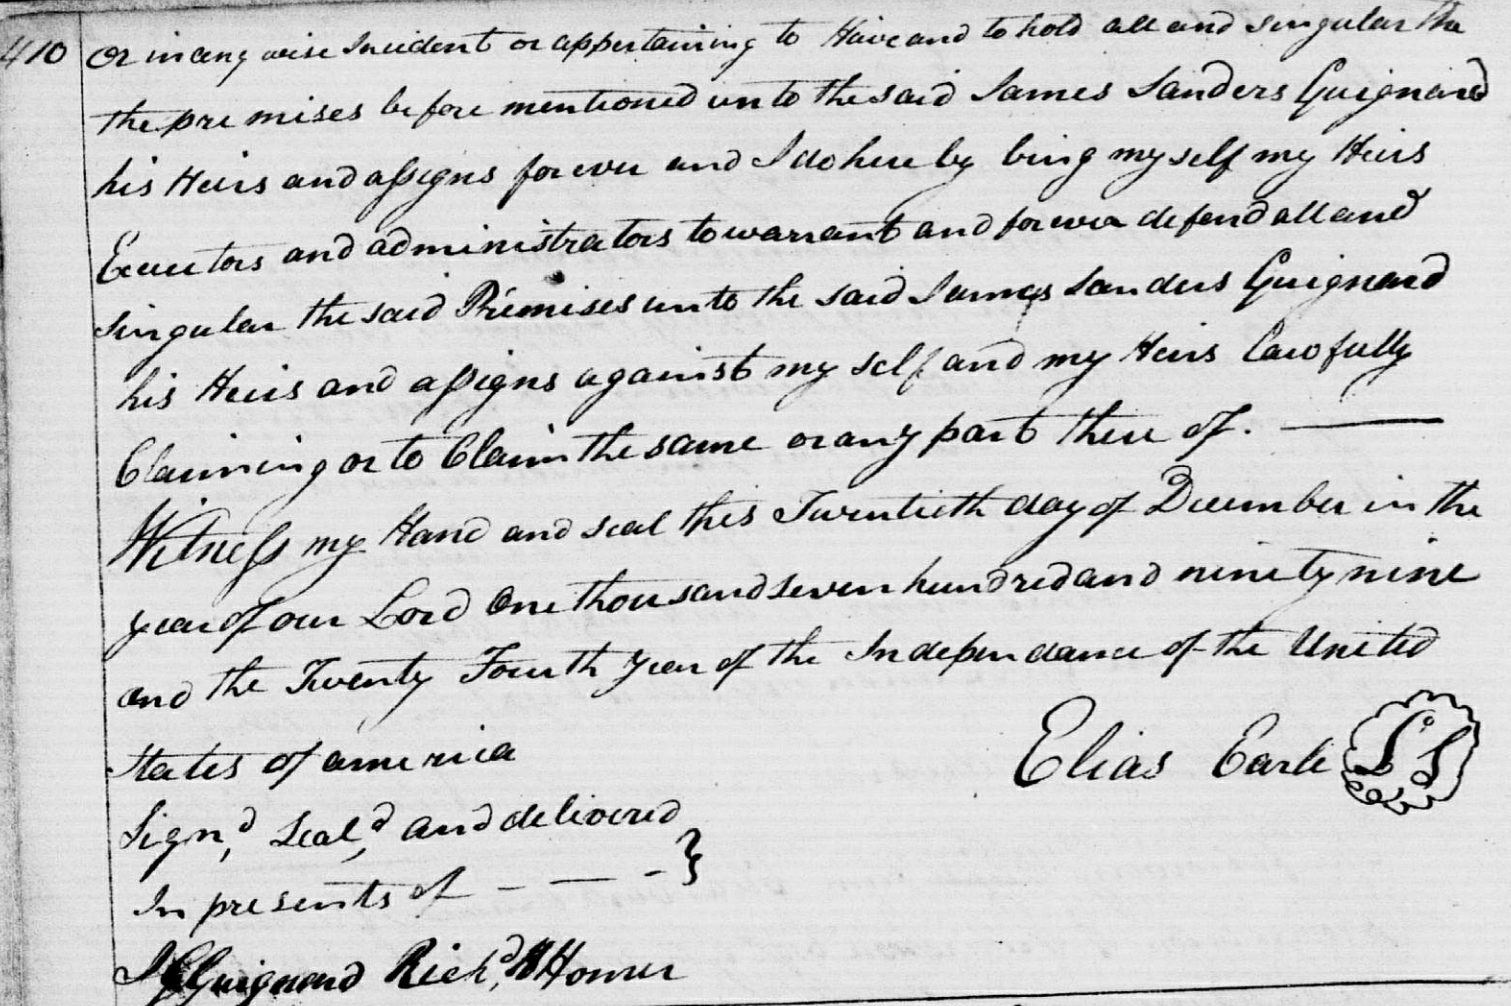 410
Or in any wise Incident or appertaining to Have and to hold all and singular the
the premises before mentioned unto the said James Sanders Guignard
his Heirs and assigns forever and I do here by bing my self my Heirs
Executors and administrators to warrant and forever defend all and
singular the said Premises unto the said James Sanders Guignard
his Heirs and assigns against my self and my Heirs Lawfully
Claiming or to Claim the same or any part there of. ———
Witness my Hand and seal this Twentieth day of December in the
year of our Lord One thousand seven hundred and ninety nine
and the Twenty Fourth year of the Independance of the United
States of america
Elias Earle LS
Sign,d Seal,d and delivered
In presents of - — - }
Guignard Rich,d Homer